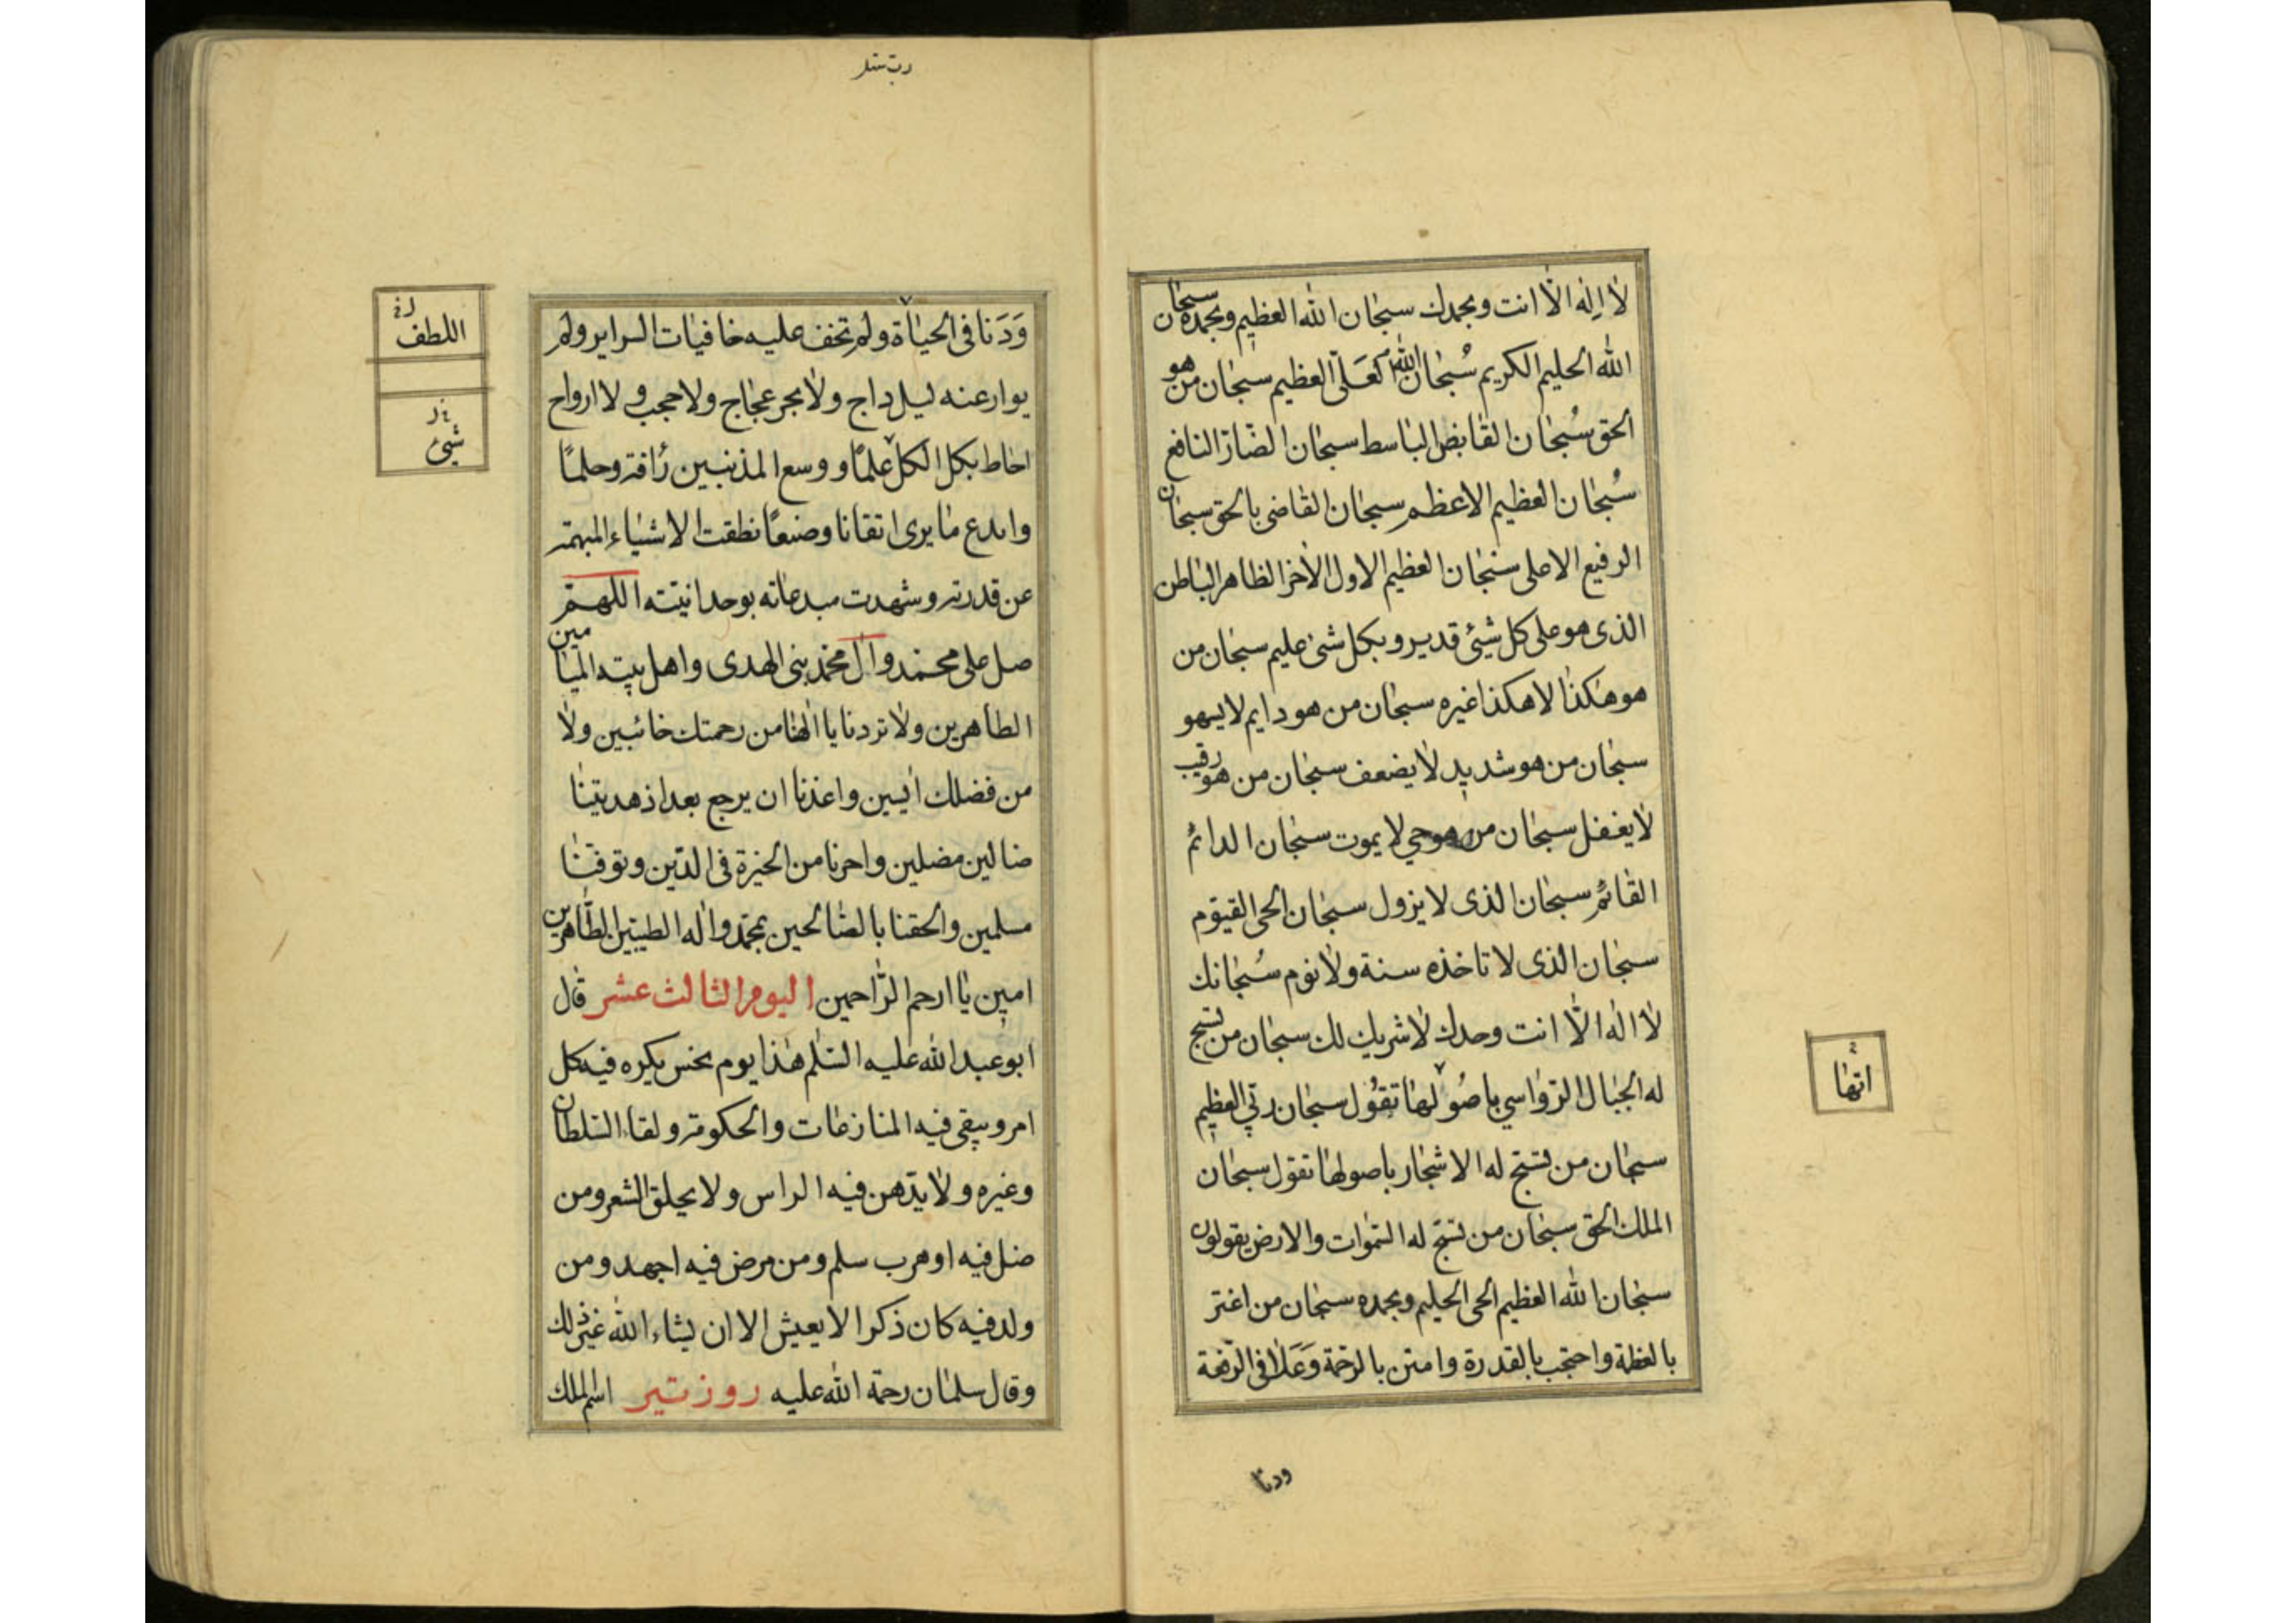 لا إله الا انت وبحمدك سبحان الله العظيم وبحمده سبحان
الله الحليم الكريم سُبحان الله العَلىّ العظيم سبحان من هو
الحق سُبحان القابض الباسط سبحان الضّارّ النافع
سُبحان العظيم الاعظم سبحان القاضى بالحق سبحان
الرفيع الاعلى سبحان العظيم الاول الاخر الظاهر الباطن
الذى هو على كل شيئ قدير وبكل شئ عليم سبحان من
هو هكذا لا هكذا غيره سبحان من هو دايم لا يسهو
سبحان من هو شديد لا يضعف سبحان من هو رقيب
لا يغفل سبحان من هو حي لا يموت سبحان الدائم
القائم سبحان الذى لا يزول سبحان الحى القيوم
سبحان الذى لا تاخذه سنة ولا نوم سُبحانك
لا اله الّا انت وحدك لا شريك لك سبحان من تسبح
له الجبال الرّواسي باصُولها تقُول سبحان ربّي العظيم
سبحان من تسبّح له الاشجار باصولها تقول سبحان
الملك الحق سبحان من تسبّح له السّموات والارض يقولون
سبحان الله العظيم الحى الحليم وبحمده سبحان من اعتز
بالعظمة واحتجب بالقدرة وامتن بالرحمة وَعَلا فى الرّفعة
انّها
ودنا
وَدَنا فى الحياة ولم تخف عليه خافيات السراير ولم
يوار عنه ليل داج ولا بحر عجاج ولا حجب ولا ارواح
احاط بكل الكل علمًا ووسع المذنبين رأفة وحلمًا
وابدع ما يرى اتقانا وصنعًا نطقت الاشياء المبهمة
عن قدرته وشهدت مبدعاته بوحدانيته اللهمّ
صل على محمد وآل محمد نبى الهدى واهل بيته الميامين
الطاهرين ولا تردنا يا الهنا من رحمتك خائبين ولا
من فضلك ايسين واعذنا ان يرجع بعد اذ هديتنا
ضالين مضلين واجرنا من الحيرة فى الدّين وتوفّنا
مسلمين والحقنا بالصّالحين بمحمد واله الطيبين الطّاهرين
امين يا ارحم الرّاحمين اليوم الثالث عشر قال
ابو عبد الله عليه السّلم هذا يوم نحس يكره فيه كل
امر ويتقى فيه المنازعات والحكومة ولقاء السّلطان
وغيره ولا يدّهن فيه الراس ولا يحلق الشعر ومن
ضل فيه او هرب سلم ومن مرض فيه اجهد ومن
ولد فيه كان ذكرا لا يعيش الا ان يشاء الله غير ذلك
وقال سلمان رحمة الله عليه روز تير اسم الملك
اللطف
شيئ